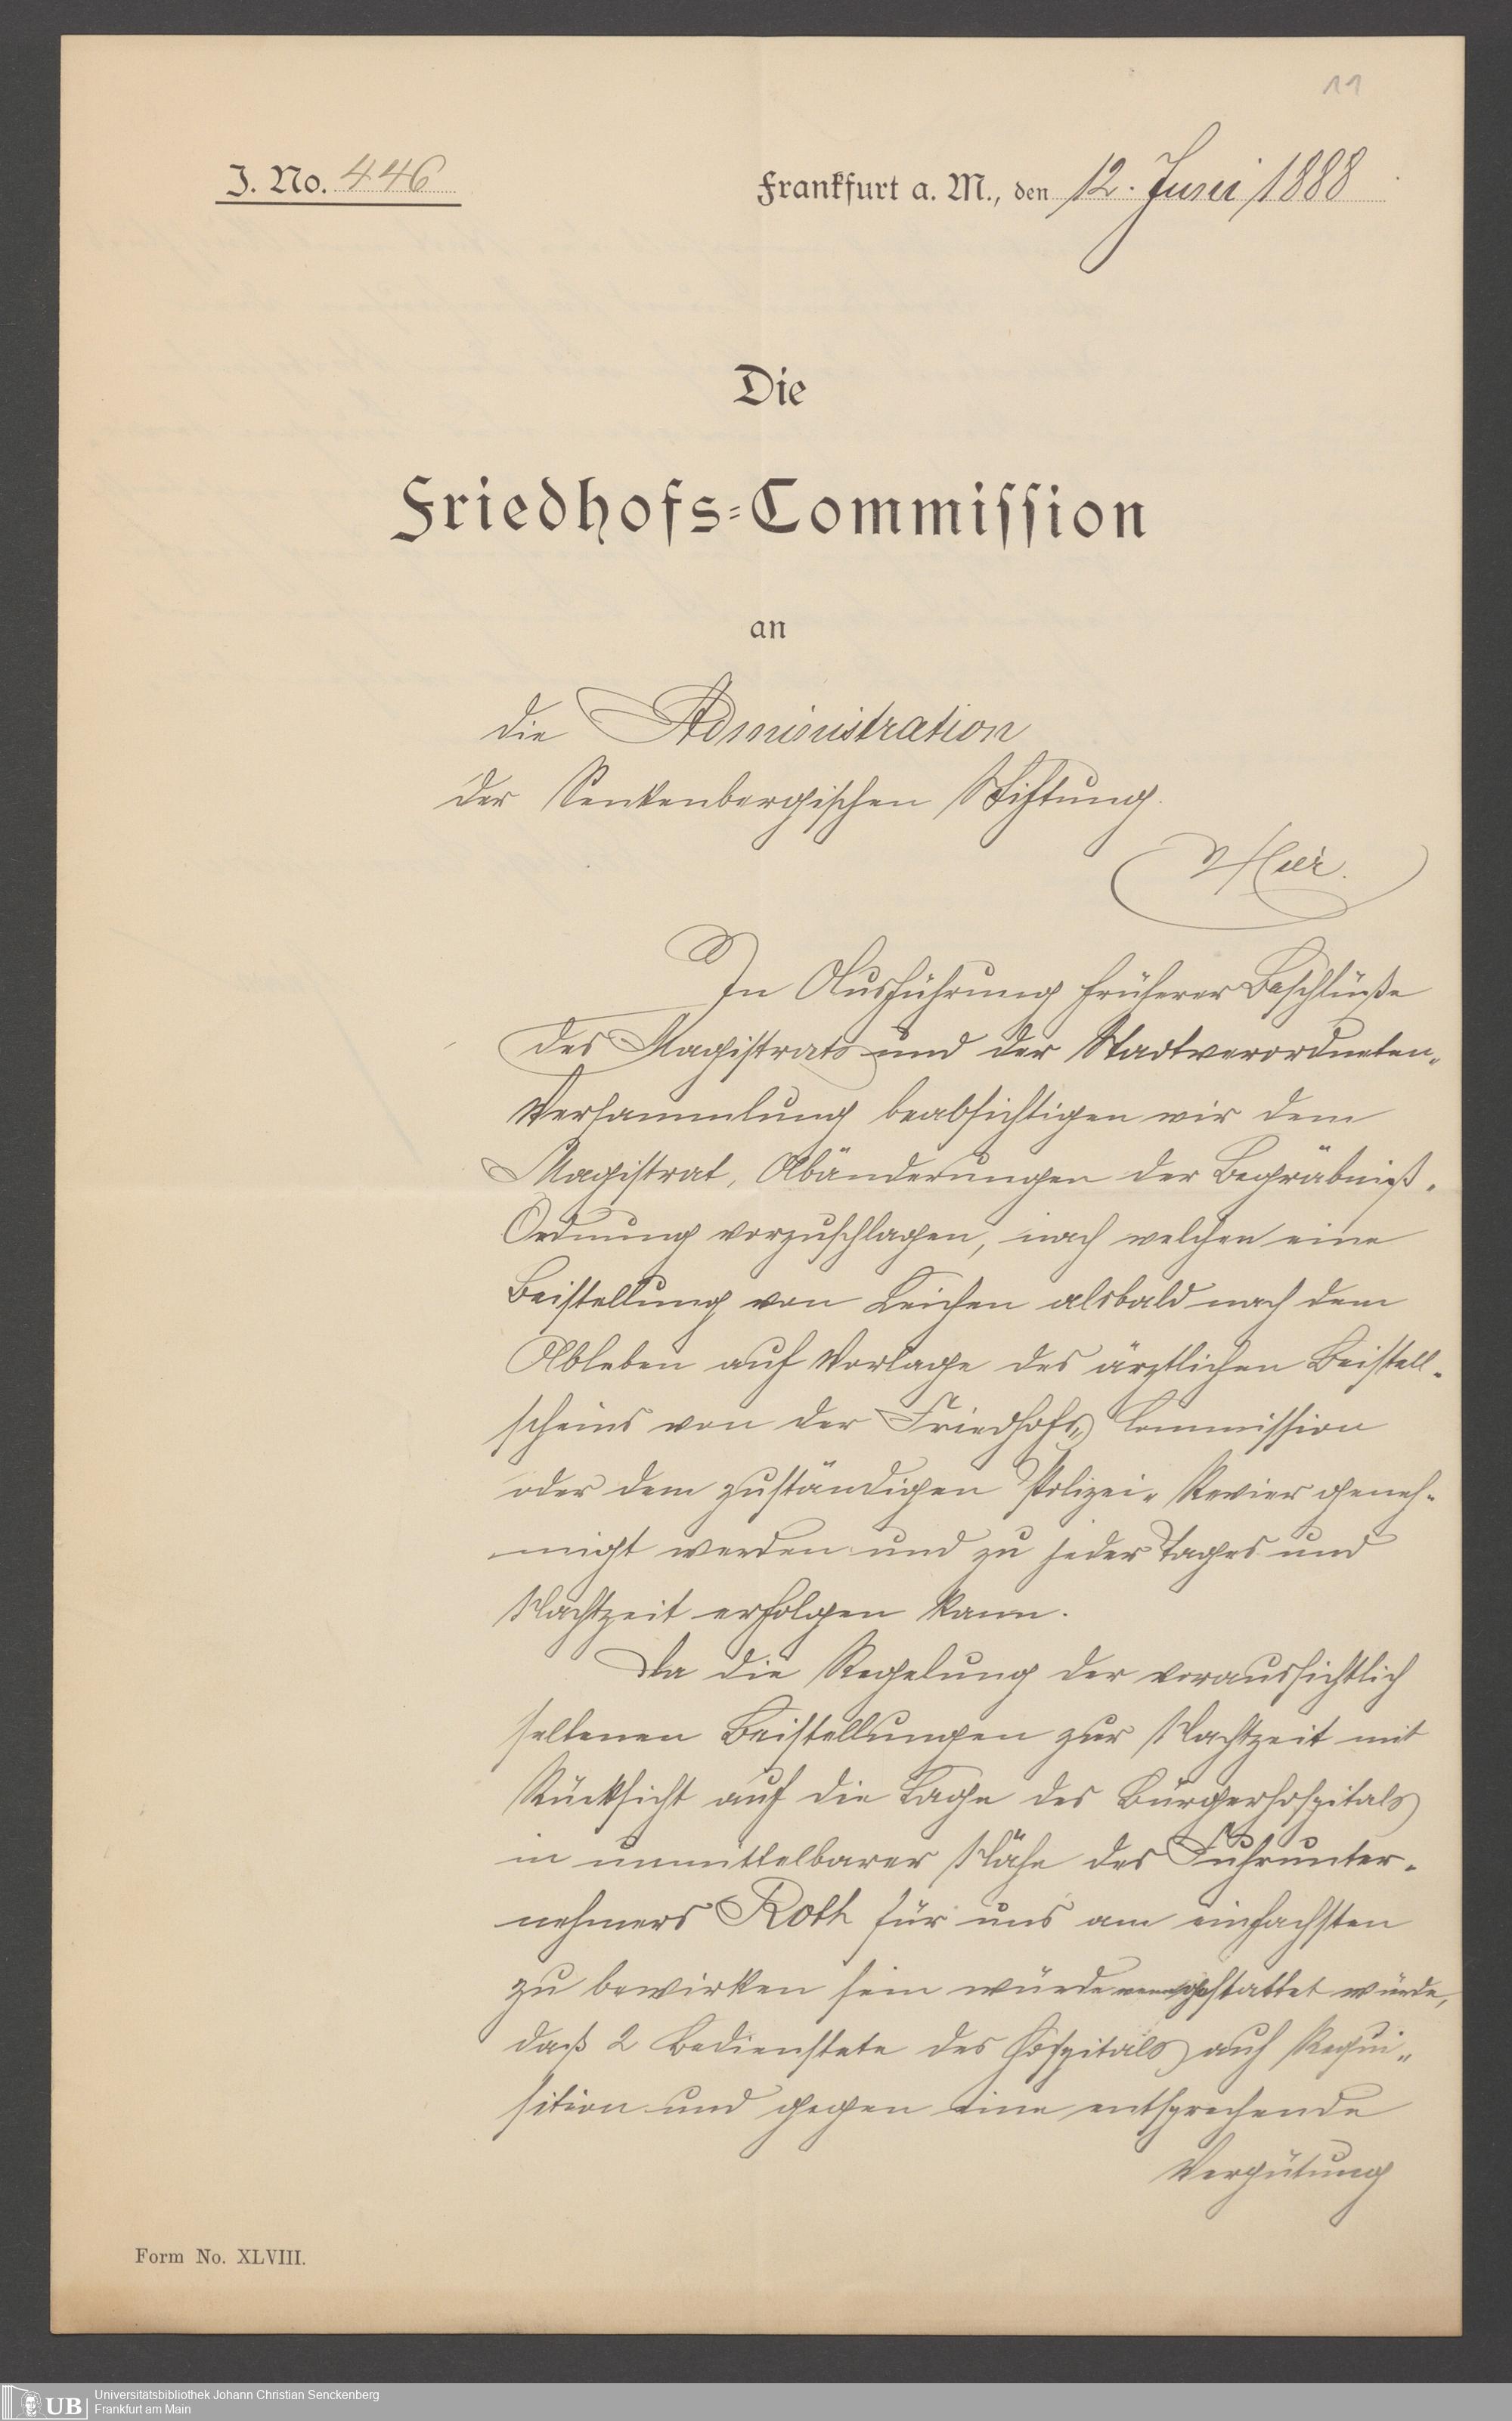 11
J. No. 446
Frankfurt a. M., den 12. Juni 1888
Die
Friedhofs-Commission
an
die Administration
der Senkenbergischen Stiftung.
Hier.
In Ausführung früherer Beschlüße
des Magistrats und der Stadtverordneten-
Versammlung beabsichtigen wir dem
Magistrat, Abänderungen der Begräbniß-
Ordnung vorzuschlagen, nach welchen eine
Beistellung von Leichen alsbald nach dem
Ableben auf Vorlage des ärztlichen Beistell-
scheins von der Friedhofs-Commission
oder dem zuständigen Polizei-Revier geneh-
migt werden und zu jeder Tages und
Nachtzeit erfolgen kann.
Da die Regelung der voraussichtlich
seltenen Beistellungen zur Nachtzeit mit
Rücksicht auf die Lage des Bürgerhospitals
in unmittelbarer Nähe des Fuhrunter-
nehmers Roth für uns am einfachsten
zu bewirken sein würde wenn gestattet würde,
daß 2 Bedienstete des Hospitals auf Requi-
sition und gegen eine entsprechende
Vergütung
Form No. XLVIII.
UB
Universitätsbibliothek Johann Christian Senckenberg
Frankfurt am Main